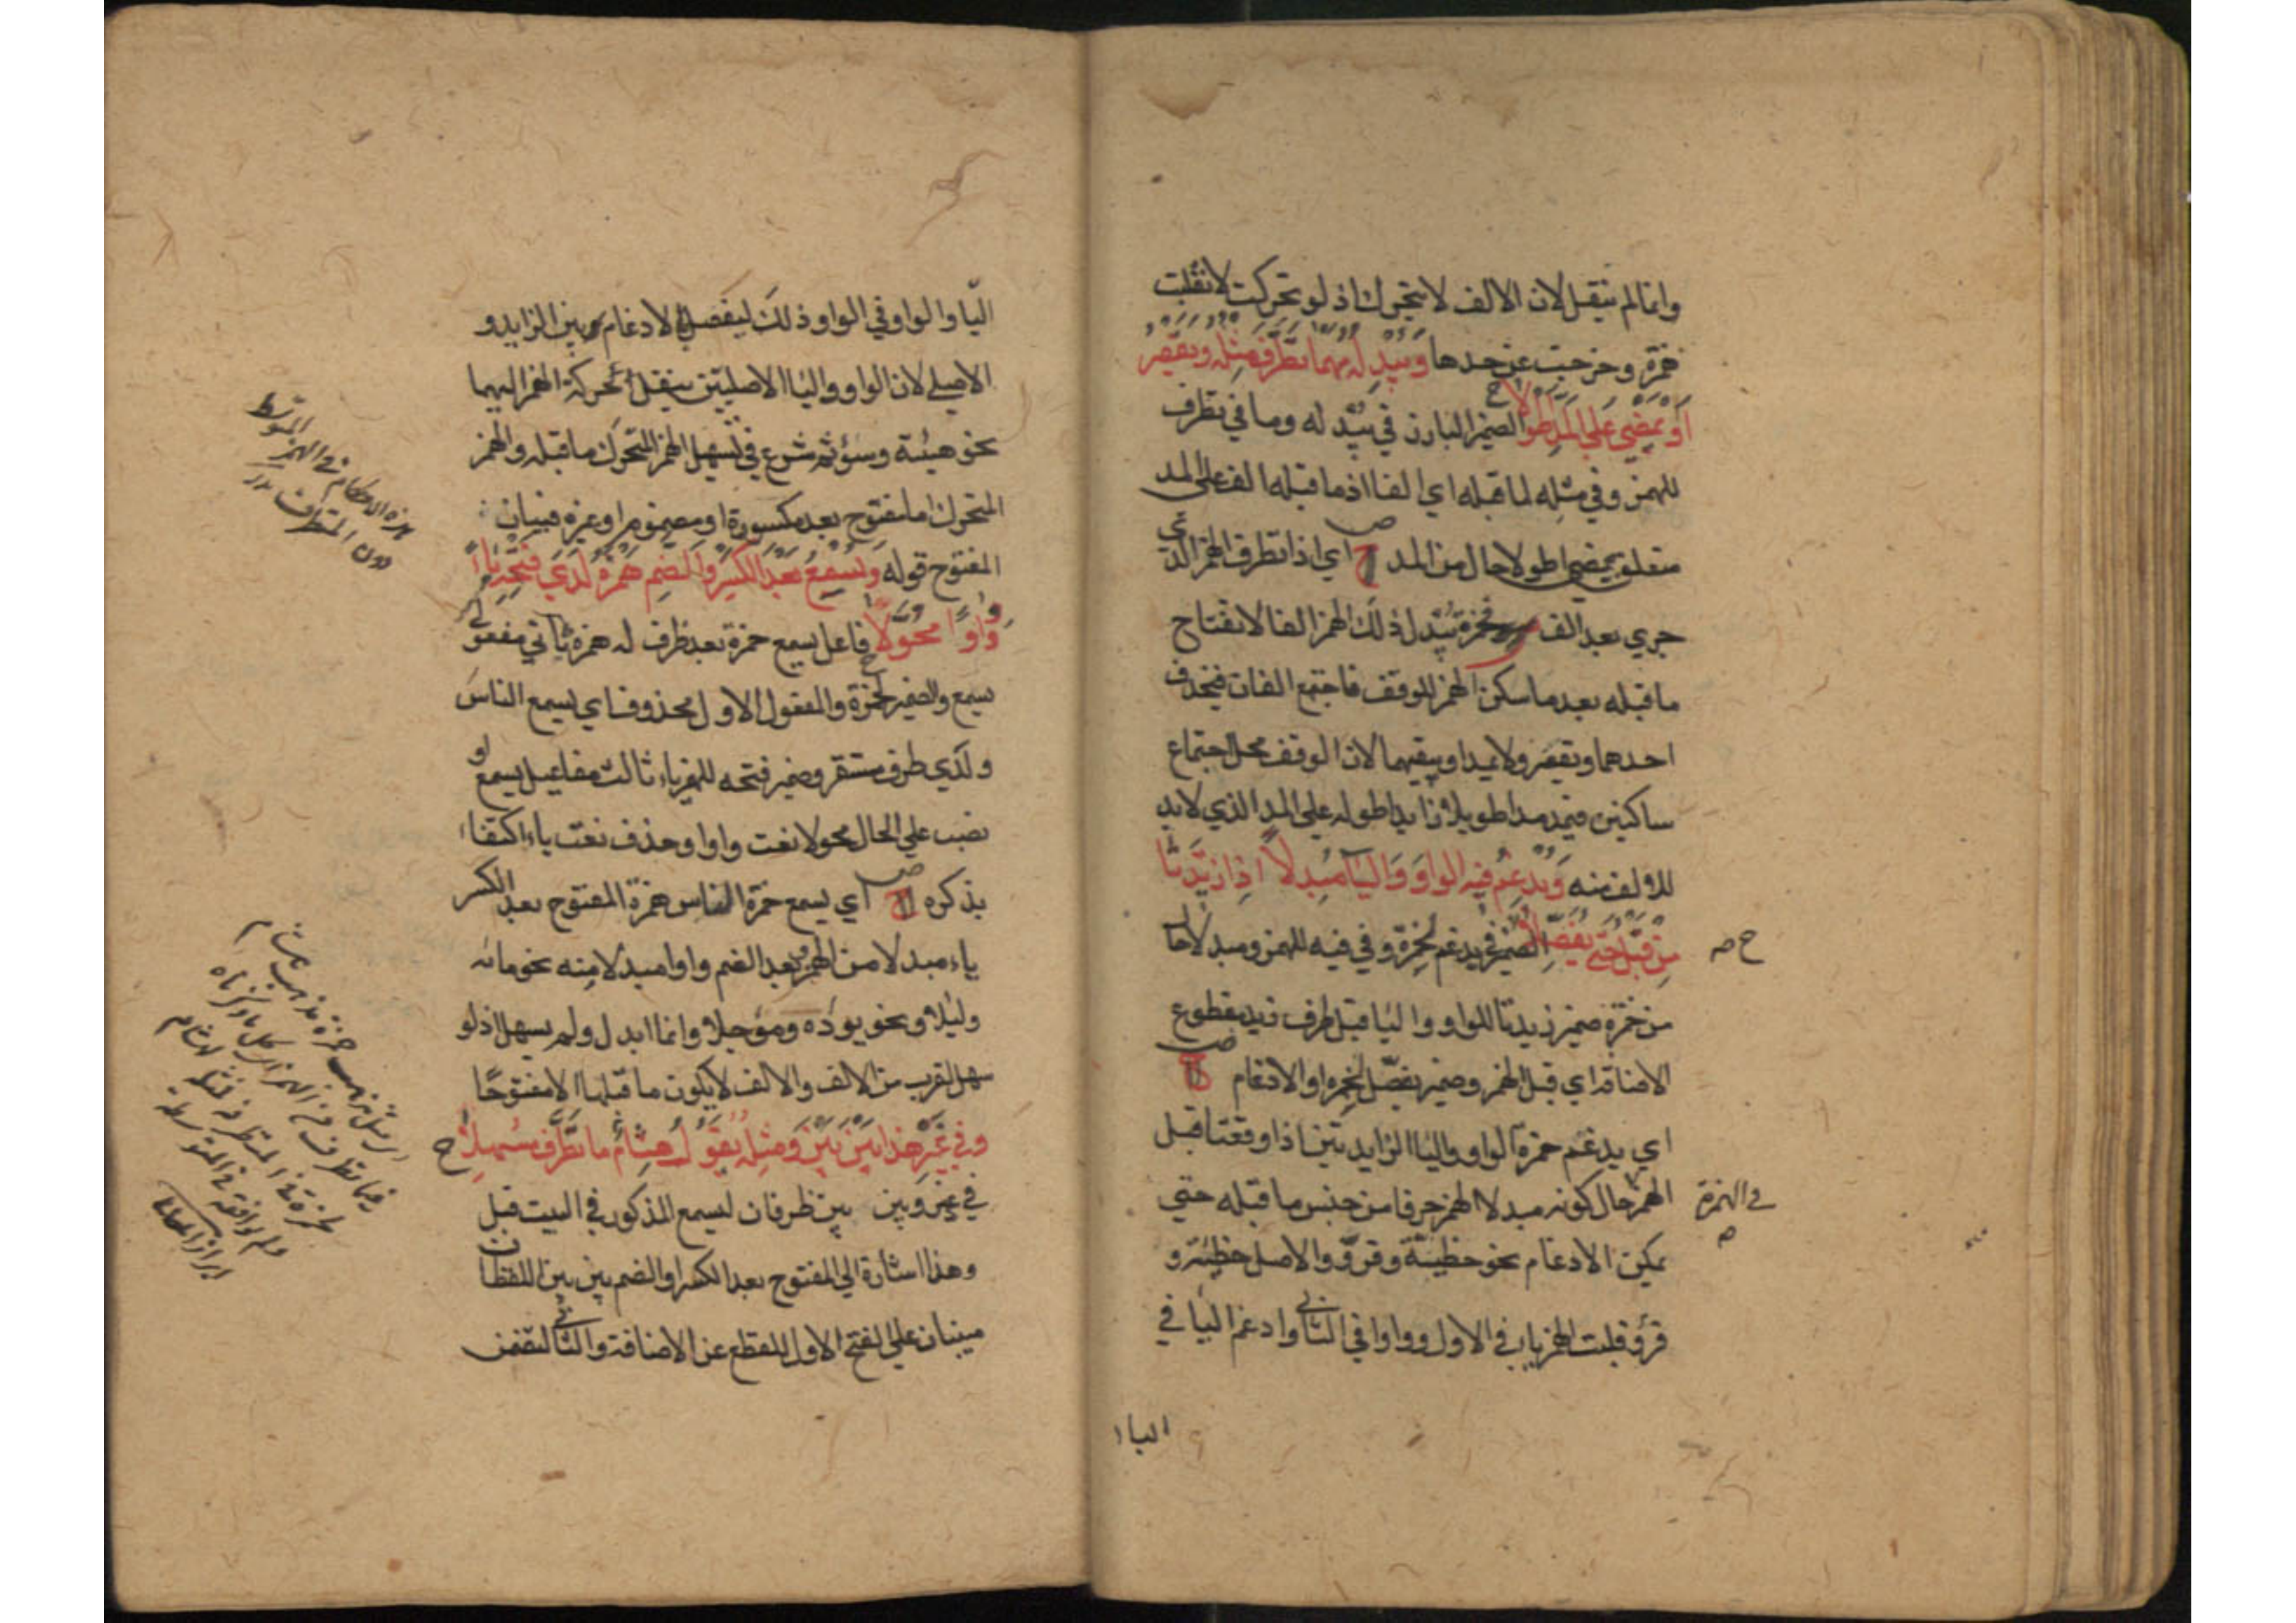 وانما لم ينقل لان الالف لا يتحرك اذ لو تحركت لانقلبت
همزة وخرجت عن حدها ويبدله مهما تطرف مثله ويقصر
او يمضي على المد اطولا ح الضمير البارز في يبدله وما في تطرف
للهمز وفي مثله لما قبله اي الفا اذ ما قبله الف على المد
متعلق بيمضي اطولا حال من المد ص ح اي اذا تطرف الهمز الذي
جرى بعد الف فحمزة يبدل ذلك الهمز الفا لانفتاح
ما قبله بعد ما سكن الهمز للوقف فاجتمع الفان فيحذف
احدهما ويقصر ولا يمد او يبقيهما لان الوقف محل اجتماع
ساكنين فيمد مدا طويلا زايدا طوله على المد الذي لابد
للالف منه ويدغم فيه الواو واليا مبدلا اذا زيدتا
من قبل حتى يفصلا الضمير في يدغم لحمزة وفي فيه للهمز ومبدلا حال
ح ص
من حمزة ضمير زيدتا للواو واليا قبل ظرف قيد مقطوع
الاضافة اي قبل الهمز وضمير يفصل لحمزة او الادغام ص ح
اي يدغم حمزة الواو واليا الزايدتين اذا وقعتا قبل
الهمز حال كونه مبدلا الهمز حرفا من جنس ما قبله حتى
في الهمزة
يمكن الادغام نحو خطيئة وقروّ والاصل خطيئة و
قرؤ قلبت الهمز ياء في الاول وواوا في الثاني وادغم اليا في
اليا
اليا والواو في الواو وذلك ليفصل الادغام بين الزايد و
الاصلي لان الواو واليا الاصليتين ينقل حركة الهمز اليهما
نحو هيئة وسوء ثم شرع في تسهيل الهمز المتحرك ما قبله والهمز
المتحرك اما مفتوح بعد مكسورة او مضموم او غيره فبيان
المفتوح قوله ويسمع بعد الكسر والضم همزه لدى فتحه ياء
وواوا محولا ح فاعل يسمع حمزة بعد ظرف له همزه ثاني مفعولي
يسمع والضمير لحمزة والمفعول الاول محذوف اي يسمع الناس
ولدى ظرف مستقر وضمير فتحه للهمز ياء ثالث مفاعيل يسمع او
نصب على الحال محولا نعت واوا وحذف نعت ياء اكتفاء
بذكره ص ح اي يسمع حمزة الناس همزة المفتوح بعد الكسر
ياء مبدلا من الهمز وبعد الضم واوا مبدلا منه نحو مائه
وليلا ونحو يوده وموجلا وانما ابدل ولم يسهل اذ لو
سهل لقرب من الالف والالف لا يكون ما قبلها الا مفتوحا
وفي غير هذا بين بين ومثله يقول هشام ما تطرف مسهلا ح
في غير وبين بين ظرفان ليسمع المذكور في البيت قبل
وهذا اشارة الى المفتوح بعد الكسر او الضم بين بين اللفظان
مبنيان على الفتح الاول للقطع عن الاضافة والثاني لتضمن
هذه الاحكام في الهمز المتوسط
دون المتطرف
اي مثل مذهب حمزة مذهب هشام
فيما تطرف من الهمز